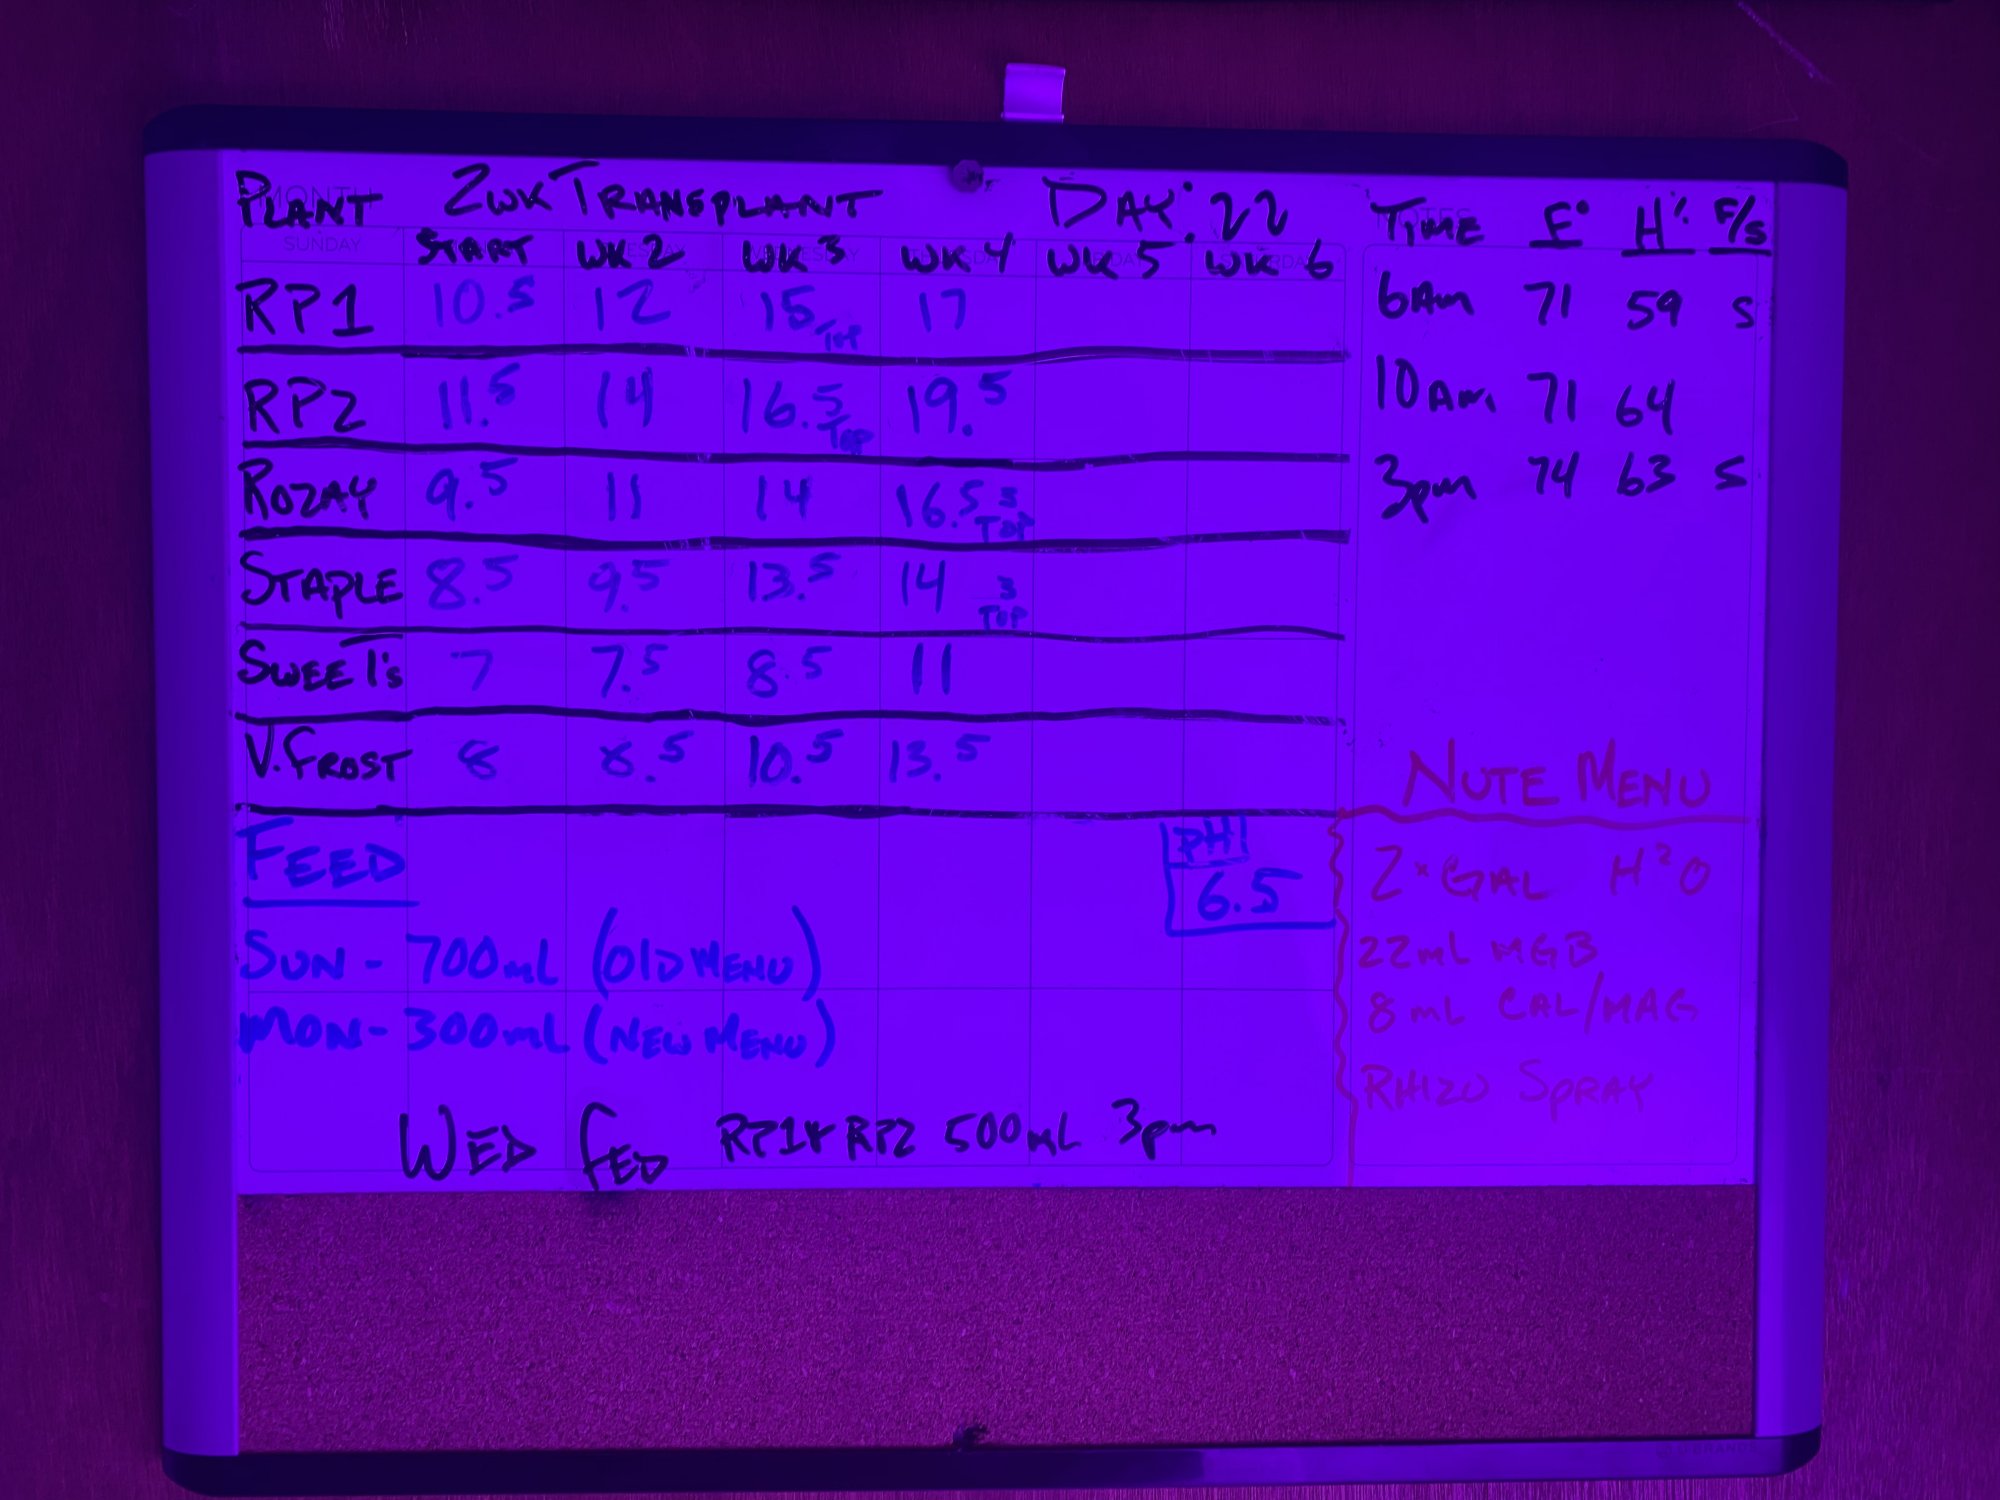 PLANT 2WK TRANSPLANT DAY: 22
START WK 2 WK 3 WK 4 WK 5 WK 6
RP1 10.5 12 15 TOP 17
RP2 11.5 14 16.5 TOP 19.5
ROZAY 9.5 11 14 16.5 3 TOP
STAPLE 8.5 9.5 13.5 14 3 TOP
SWEET'S 7 7.5 8.5 11
V. FROST 8 8.5 10.5 13.5
FEED
PH
6.5
SUN - 700mL (OLD MENU)
MON - 300mL (NEW MENU)
WED FED RP1 & RP2 500mL 3pm
TIME F° H% F/S
6AM 71 59 S
10AM 71 64
3pm 74 63 S
NUTE MENU
2 x GAL H²O
22mL MGB
8mL CAL/MAG
RHIZO SPRAY
MONTH
SUNDAY